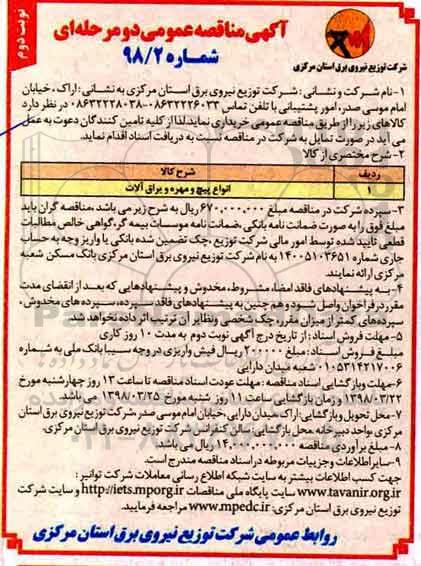 نوبت دوم
آگهی مناقصه عمومی دو مرحله‌ای
شماره ۹۸/۲
شرکت توزیع نیروی برق استان مرکزی
۱-نام شرکت و نشانی : شرکت توزیع نیروی برق استان مرکزی به نشانی : اراک ، خیابان
امام موسی صدر، امور پشتیبانی با تلفن تماس ۰۸۶۳۲۲۲۶۰۳۳-۰۸۶۳۲۲۲۸۰۳۸ در نظر دارد
کالاهای زیر را از طریق مناقصه عمومی خریداری نماید.لذا از کلیه تامین کنندگان دعوت به عمل
می آید در صورت تمایل به شرکت در مناقصه نسبت به دریافت اسناد اقدام نماید.
۲-شرح مختصری از کالا
ردیف شرح کالا
۱ انواع پیچ و مهره و یراق آلات
۳-سپرده شرکت در مناقصه مبلغ ۶۷۰,۰۰۰,۰۰۰ ریال به شرح زیر می باشد ،مناقصه گران باید
مبلغ فوق را به صورت ضمانت نامه بانکی ،ضمانت نامه موسسات بیمه گر،گواهی خالص مطالبات
قطعی تایید شده توسط امور مالی شرکت توزیع ،چک تضمین شده بانکی یا واریز وجه به حساب
جاری شماره ۱۴۰۰۵۱۰۳۶۵۱ به نام شرکت توزیع نیروی برق استان مرکزی بانک مسکن شعبه
مرکزی ارائه نمایند.
۴-به پیشنهادهای فاقد امضاء، مشروط، مخدوش و پیشنهادهایی که بعد از انقضای مدت
مقرر در فراخوان واصل شود و هم چنین به پیشنهادهای فاقد سپرده، سپرده های مخدوش ،
سپرده‌های کمتر از میزان مقرر، چک شخصی ونظایر آن ترتیب اثر داده نخواهد شد.
۵-مهلت فروش اسناد : از تاریخ درج آگهی نوبت دوم به مدت ۱۰ روز کاری
مبلغ فروش اسناد: مبلغ ۲۰۰۰۰۰ ریال فیش واریزی در وجه سیبا بانک ملی به شماره
۰۱۰۵۳۱۴۲۱۷۰۰۶ شعبه میدان دارایی
۶-مهلت وبازگشایی اسناد مناقصه : مهلت عودت اسناد مناقصه تا ساعت ۱۳ روز چهارشنبه مورخ
۱۳۹۸/۰۳/۲۲ و زمان بازگشایی ساعت ۱۱ روز شنبه مورخ ۱۳۹۸/۰۳/۲۵ می باشد.
۷-محل تحویل وبازگشایی : اراک میدان دارایی ،خیابان امام موسی صدر، شرکت توزیع نیروی برق استان
مرکزی ،واحد دبیرخانه محل بازگشایی: سالن کنفرانس شرکت توزیع نیروی برق استان مرکزی.
۸-مبلغ برآوردی مناقصه ۱۴,۰۰۰,۰۰۰,۰۰۰ ریال می باشد.
۹-سایر اطلاعات وجزییات مربوطه در اسناد مناقصه مندرج است.
جهت کسب اطلاعات بیشتر به سایت شبکه اطلاع رسانی معاملات شرکت توانیر :
www.tavanir.org.ir سایت پایگاه ملی مناقصات http://iets.mporg.ir و سایت شرکت
توزیع نیروی برق استان مرکزی: www.mpedc.ir مراجعه فرمایید.
روابط عمومی شرکت توزیع نیروی برق استان مرکزی